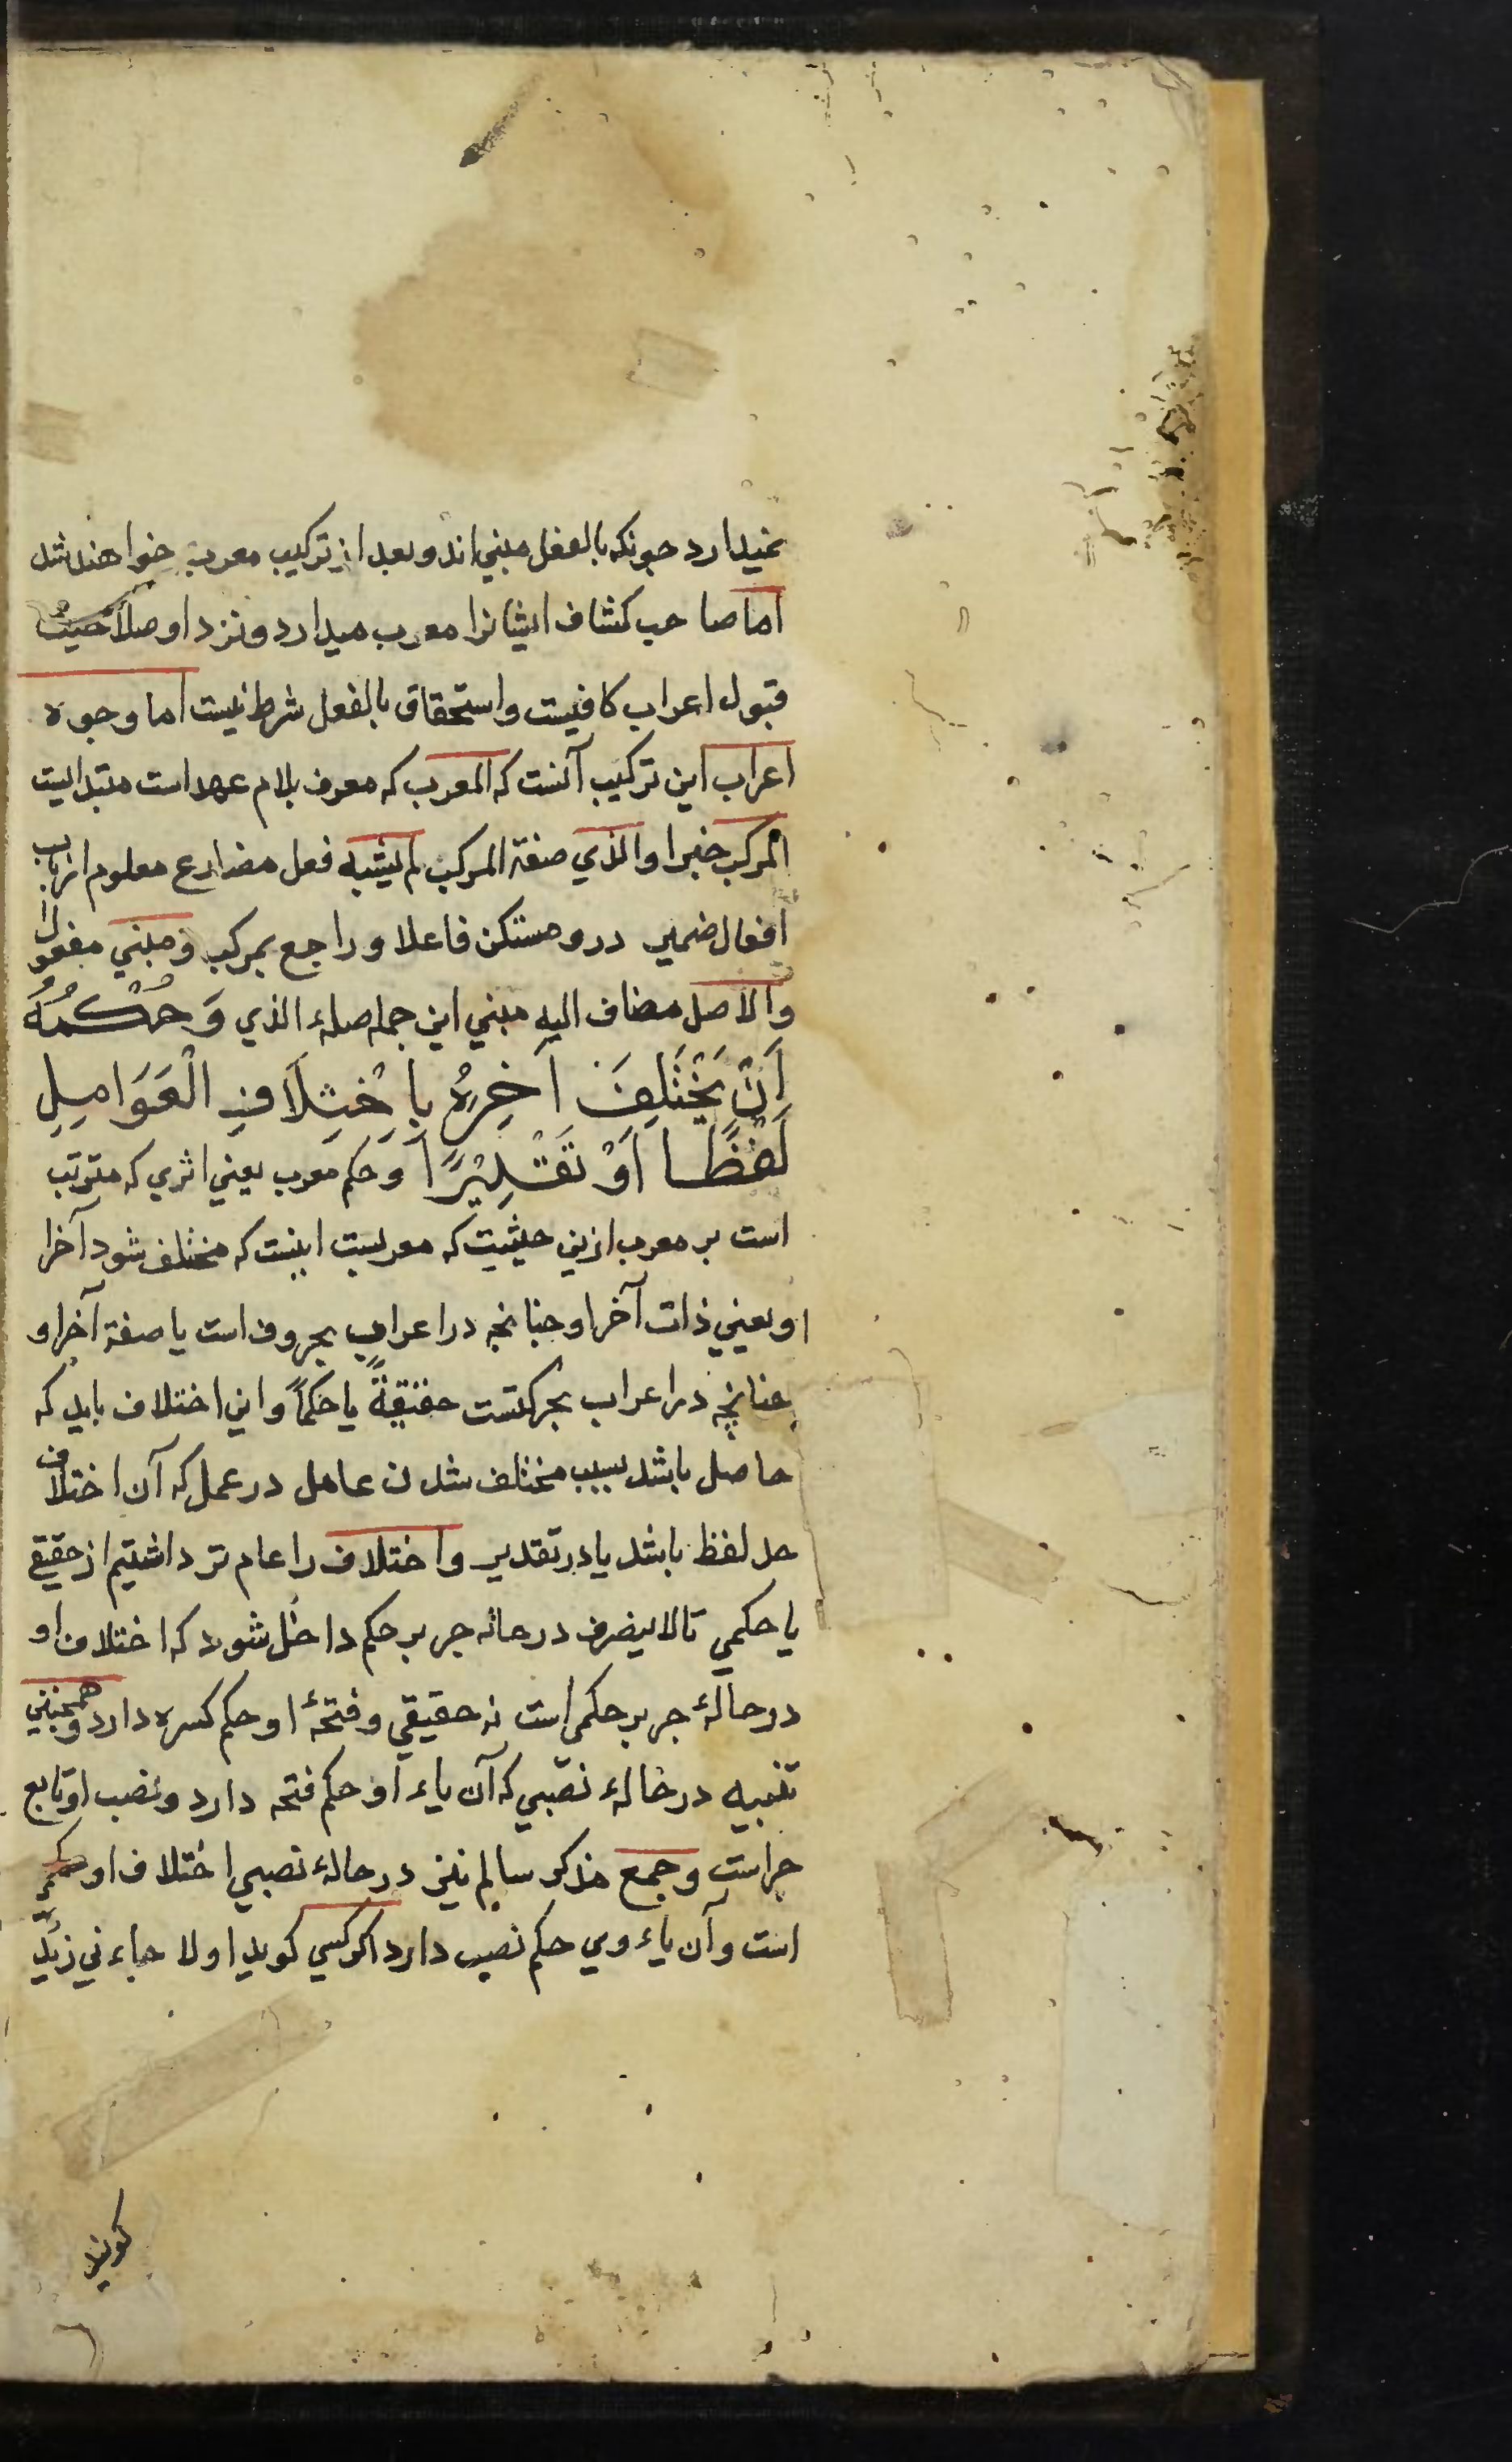 نمیدارد چونکه بالفعل مبنی اند و بعد از ترکیب معرب خواهند شد
اما صاحب کشاف ایشانرا معرب میدارد و نزد او صلاحیت
قبول اعراب کافیست و استحقاق بالفعل شرط نیست اما وجوه
اعراب این ترکیب آنست که المعرب که معرف بلام عهد است مبتدا است
المرکب خبر او الذي صفة المرکب لم یشبه فعل مضارع معلوم از باب
افعال ضمیر درو مستکن فاعلا و راجع بمرکب و مبني مفعول
والاصل مضاف الیه مبني این جمله صلهء الذي وَحُكْمُهُ
اَنْ يَخْتَلِفَ اٰخِرُهُ بِاِخْتِلَافِ الْعَوَامِلِ
لَفْظًا اَوْ تَقْدِيْرًا و حکم معرب یعني اثري که مترتب
است بر معرب ازین حیثیت که معربست اینست که مختلف شود آخر
او یعني ذات آخر او چنانچه در اعراب بحروف است یا صفة آخر او
چنانچه در اعراب بحرکتست حقیقةً یا حکماً و این اختلاف باید که
حاصل باشد بسبب مختلف شدن عامل در عمل که آن اختلاف
در لفظ باشد یا در تقدیر و اختلاف را عام تر داشتیم از حقیقي
یا حکمي تا لا ینصرف در حالهء جر بر حکم داخل شود که اختلاف او
در حالهٔ جر بر حکمی است نه حقیقي و فتحهٔ او حکم کسره دارد و همچنین
تثنیه در حالهء نصبي که آن یاء او حکم فتحه دارد و نصب او تابع
جر است و جمع مذکر سالم نیز در حالهٔ نصبي اختلاف او حکمي
است و آن یاء وي حکم نصب دارد اگر کسي گوید اولا جاءني زیدٌ
گویند